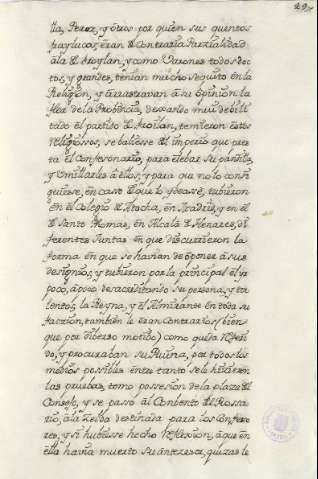 29
lla, Perez, y otros por quien sus quentos
frayluços, eran de Contraria Parzialidad
â la de Froylan, y como Varones todos doc
tos, y grandes, tenian mucho sequito en la
Religion, y arrastravan â su opinion la
flor de la Probincia, dexando mui debili
tado el partido de Froilan, temieron estos
Religiosos, se baliesse del imperio que pres
ta el Confesonario, para elebar su partido,
y Umillarlos â ellos, y para que no lo consi
guiesse, en caso de que lo ydeasse, tubieron
en el Colegio de Atocha, en Madrid, y en el
de Santo Thomas, en Alcalà de Henares, di
ferentes Juntas en que discurrieron la
forma en que se havian de oponer â sus
designios, y tubieron por la principal el
poco apoio desacreditando su persona, y ta
lentos; la Reyna, y el Almirante en toda su
faccion, tambien le eran Contrarios (bien
que por diberso motibo) como queda referi
do, y procuraban su Ruina, por todos los
medios possibles, entre tanto se le hizieron
las pruebas, tomo possesion de la plaza del
Consejo, y se passó al Conbento del Rossa
rio, â la Zelda destinada para los Confeso
res, y si hubiesse hecho reflexion, â que en
ella havia muerto su antezesor, quizas le